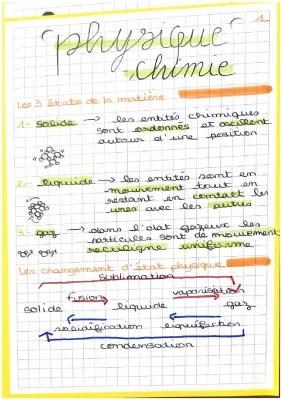 1
physique
chimie
Les 3 états de la matière
1- solide -> les entités chimiques
sont ordonnés et oscillent
autour d'une position
2- liquide -> les entités sont en
mouvement tout en
restant en contact les
unes avec les autres
3- gaz -> dans l'état gazeux les
particules sont de mouvement
rectiligne uniforme.
Les changement d'état physique
Sublimation
fusion vaporisation
solide liquide gaz
solidification liquéfaction
condensation